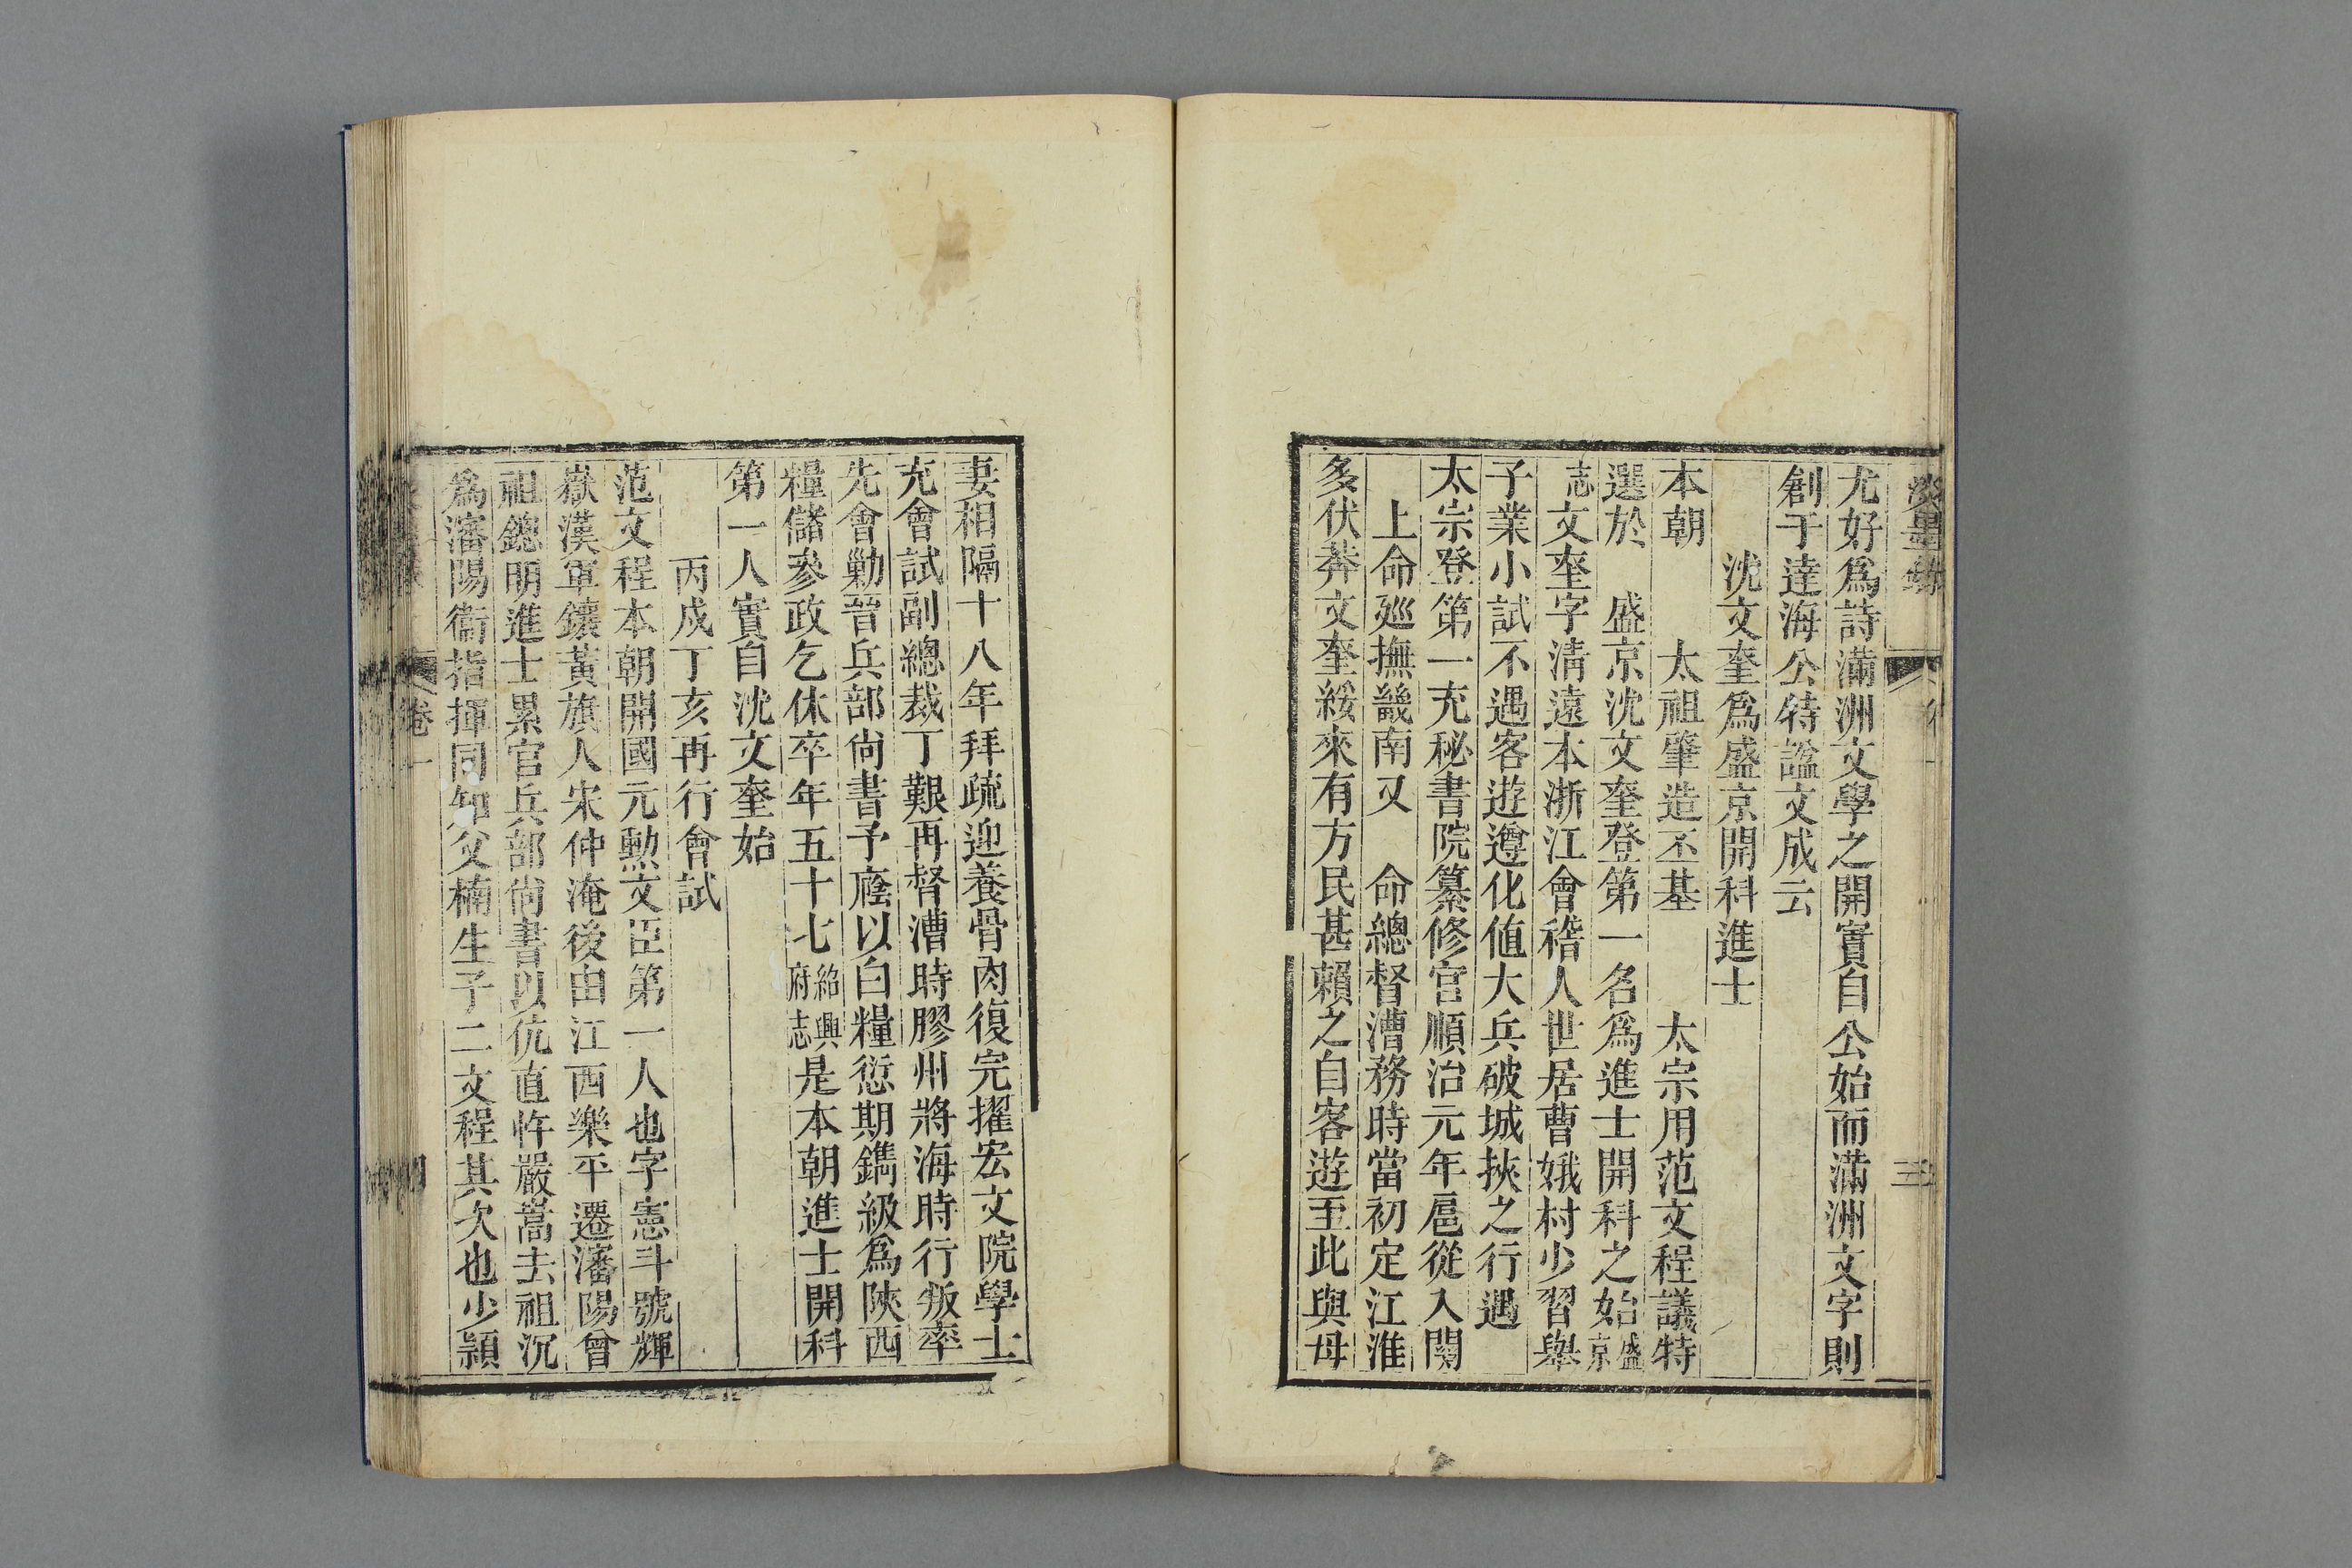 淡墨錄
三
尤好爲詩滿洲文學之開實自公始而滿洲文字則
創于達海公特諡文成云
沈文奎爲盛京開科進士
本朝 太祖肇造丕基 太宗用范文程議特
選於 盛京沈文奎登第一名爲進士開科之始盛京
志文奎字清遠本浙江會稽人世居曹娥村少習舉
子業小試不遇客遊遵化值大兵破城挾之行遇
太宗登第一充秘書院纂修官順治元年扈從入関
上命廵撫畿南又 命總督漕務時當初定江淮
多伏莽文奎綏來有方民甚賴之自客遊至此與母
妻相隔十八年拜疏迎養骨肉復完擢宏文院學士
充會試副總裁丁艱再督漕時膠州將海時行叛率
先會勦晉兵部尙書予廕以白糧愆期鐫級爲陝西
糧儲參政乞休卒年五十七紹興府志是本朝進士開科
第一人實自沈文奎始
丙戍丁亥再行會試
范文程本朝開國元勲文臣第一人也字憲斗號輝
嶽漢軍鑲黃旗人宋仲淹後由江西樂平遷瀋陽曾
祖鏓明進士累官兵部尙書以伉直忤嚴嵩去祖沉
爲瀋陽衞指揮同知父楠生子二文程其次也少穎
卷一
四